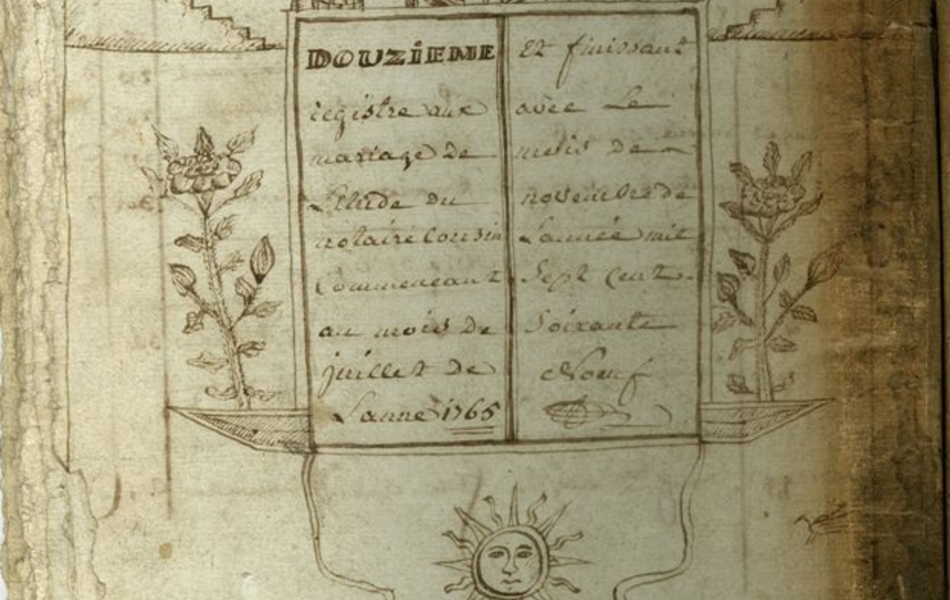 DOUZIEME
registre aux
mariage de
L'etude du
notaire Cousin
Commencant
au mois de
juillet de
Lanne 1765
Et finissant
avec Le
mois de
novembre de
Lannee mil
Sept Cent
Soixante
Noeuf